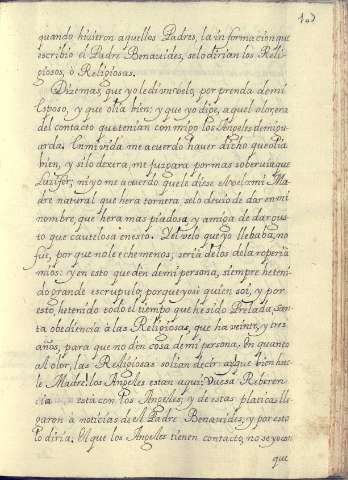 quando hisieron aquellos Padres, la informacion que
escribio el Padre Benauides, selo dirian los Reli-
giosos, ò Religiosas.
Dize mas, que yo le di un velo, por prenda de mi
Esposo, y que olia bien; y que yo dije, aquel olor, era
del contacto que tenian con migo los Angeles de mi gu-
arda. En mi vida me acuerdo hauer dicho que olia
bien, y si lo dexera, me juzgara por mas soberuia que
Luzifer; ni yo me acuerdo que le diese el velo: mi Ma-
dre natural que hera tornera, selo deuio de dar en mi
nombre, que hera mas piadosa, y amiga de dar gus-
to que cautelosa en esto. Del velo que yo llebaba, no
fue, por que no le eche menos; seria de los de la roperia
mios: y en esto que den de mi persona, siempre he teni-
do grande escrupulo; porque yo sè quien soi, y por
esto, he tenido todo el tiempo que he sido Prelada,
ta obediencia à las Religiosas, que ha veinte, y tres
años, para que no dèn cosa de mi persona. En quanto
al olor, las Religiosas solian decir: que bien hue-
le Madre: los Angeles estan aqui: Vuessa Reberen-
cia està con los Angeles; y de estas platicas lle-
garon à noticias de el Padre Benauides; y por esto
lo diria. El que los Angeles tienen contacto, no se yo
que